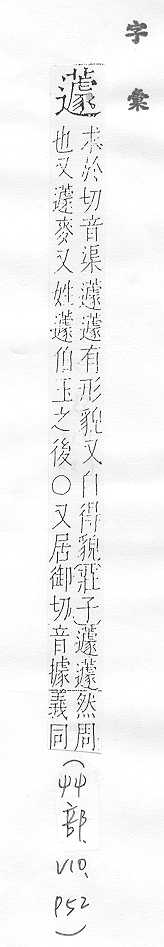 字彙
蘧
求於切音渠蘧蘧有形貌又自得貌莊子蘧蘧然周
也又蘧麥又姓蘧伯玉之後○又居御切音據義同
(艸部、V10、P52)